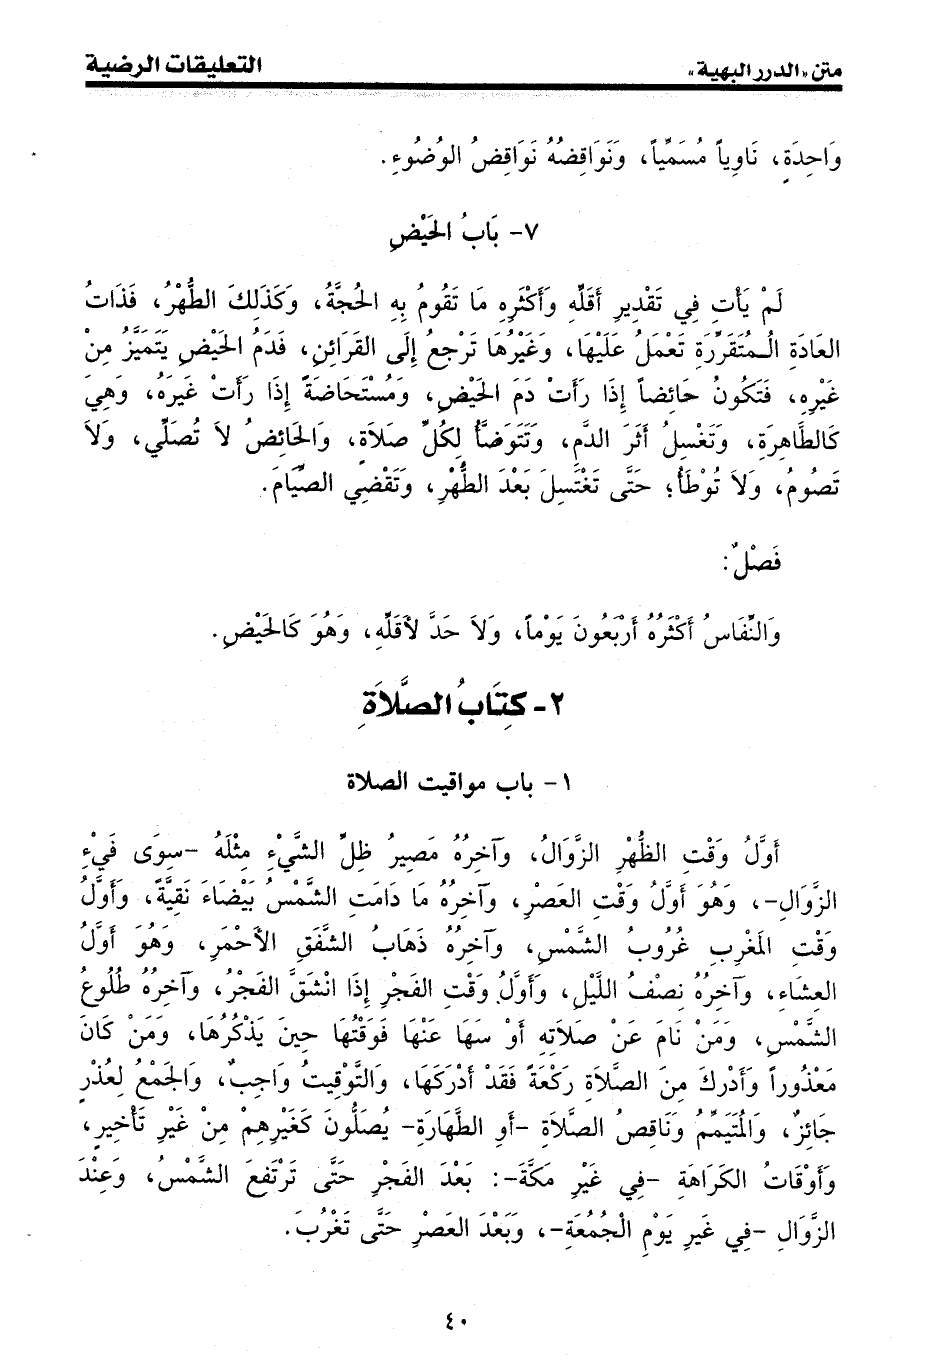 متن «الدرر البهية» التعليقات الرضية
وَاحِدَةٍ، نَاوِياً مُسَمِّياً، وَنَوَاقِضُهُ نَوَاقِضُ الوُضُوءِ.
٧- بَابُ الحَيْضِ
لَمْ يَأْتِ فِي تَقْدِيرِ أَقَلِّهِ وَأَكْثَرِهِ مَا تَقُومُ بِهِ الحُجَّةُ، وَكَذَلِكَ الطُّهْرُ، فَذَاتُ
العَادَةِ الـمُتَقَرِّرَةِ تَعْمَلُ عَلَيْهَا، وَغَيْرُهَا تَرْجِعُ إِلَى القَرَائِنِ، فَدَمُ الحَيْضِ يَتَمَيَّزُ مِنْ
غَيْرِهِ، فَتَكُونُ حَائِضاً إِذَا رَأَتْ دَمَ الحَيْضِ، وَمُسْتَحَاضَةً إِذَا رَأَتْ غَيْرَهُ، وَهِيَ
كَالطَّاهِرَةِ، وَتَغْسِلُ أَثَرَ الدَّمِ، وَتَتَوَضَّأُ لِكُلِّ صَلاَةٍ، وَالحَائِضُ لاَ تُصَلِّي، وَلاَ
تَصُومُ، وَلاَ تُوطَأُ؛ حَتَّى تَغْتَسِلَ بَعْدَ الطُّهْرِ، وَتَقْضِي الصِّيَامَ.
فَصْلٌ:
وَالنِّفَاسُ أَكْثَرُهُ أَرْبَعُونَ يَوْماً، وَلاَ حَدَّ لأَقَلِّهِ، وَهُوَ كَالحَيْضِ.
٢- كِتَابُ الصَّلاَةِ
١- باب مواقيت الصلاة
أَوَّلُ وَقْتِ الظُّهْرِ الزَّوَالُ، وَآخِرُهُ مَصِيرُ ظِلِّ الشَّيْءِ مِثْلَهُ -سِوَى فَيْءِ
الزَّوَالِ-، وَهُوَ أَوَّلُ وَقْتِ العَصْرِ، وَآخِرُهُ مَا دَامَتِ الشَّمْسُ بَيْضَاءَ نَقِيَّةً، وَأَوَّلُ
وَقْتِ المَغْرِبِ غُرُوبُ الشَّمْسِ، وَآخِرُهُ ذَهَابُ الشَّفَقِ الأَحْمَرِ، وَهُوَ أَوَّلُ
العِشَاءِ، وَآخِرُهُ نِصْفُ اللَّيْلِ، وَأَوَّلُ وَقْتِ الفَجْرِ إِذَا انْشَقَّ الفَجْرُ، وَآخِرُهُ طُلُوعُ
الشَّمْسِ، وَمَنْ نَامَ عَنْ صَلاَتِهِ أَوْ سَهَا عَنْهَا فَوَقْتُهَا حِينَ يَذْكُرُهَا، وَمَنْ كَانَ
مَعْذُوراً وَأَدْرَكَ مِنَ الصَّلاَةِ رَكْعَةً فَقَدْ أَدْرَكَهَا، وَالتَّوْقِيتُ وَاجِبٌ، وَالجَمْعُ لِعُذْرٍ
جَائِزٌ، وَالمُتَيَمِّمُ وَنَاقِصُ الصَّلاَةِ -أَوِ الطَّهَارَةِ- يُصَلُّونَ كَغَيْرِهِمْ مِنْ غَيْرِ تَأْخِيرٍ،
وَأَوْقَاتُ الكَرَاهَةِ -فِي غَيْرِ مَكَّةَ-: بَعْدَ الفَجْرِ حَتَّى تَرْتَفِعَ الشَّمْسُ، وَعِنْدَ
الزَّوَالِ -فِي غَيرِ يَوْمِ الْجُمُعَةِ-، وَبَعْدَ العَصْرِ حَتَّى تَغْرُبَ.
٤٠